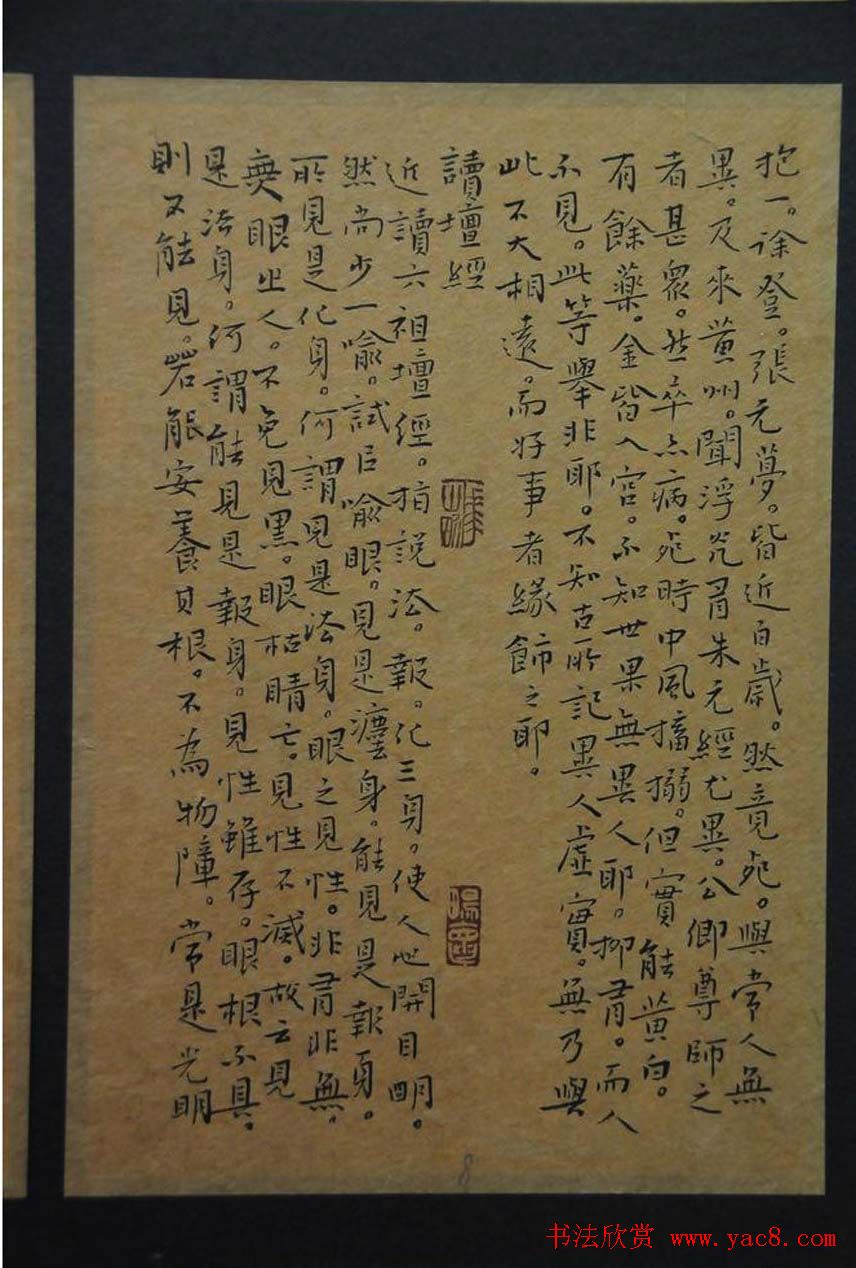 抱一。徐登。張元夢。皆近百歲。然竟死。與常人無
異。及來黃州。聞浮光有朱元經尤異。公卿尊師之
者甚眾。然卒亦病。死時中風搐搦。但實能黃白。
有餘藥。金皆入官。不知世果無異人耶。抑有。而人
不見。此等舉非耶。不知古所記異人虛實。無乃與
此不大相遠。而好事者緣飾之耶。
讀壇經
近讀六祖壇經。指說法。報。化三身。使人心開目明。
然尚少一喻。試以喻眼。見是法身。能見是報身。
所見是化身。何謂見是法身。眼之見性。非有非無。
無眼之人。不免見黑。眼枯睛亡。見性不滅。故云見
是法身。何謂能見是報身。見性雖存。眼根不具。
則不能見。若能安養其根。不為物障。常是光明
8
书法欣赏 www.yac8.com